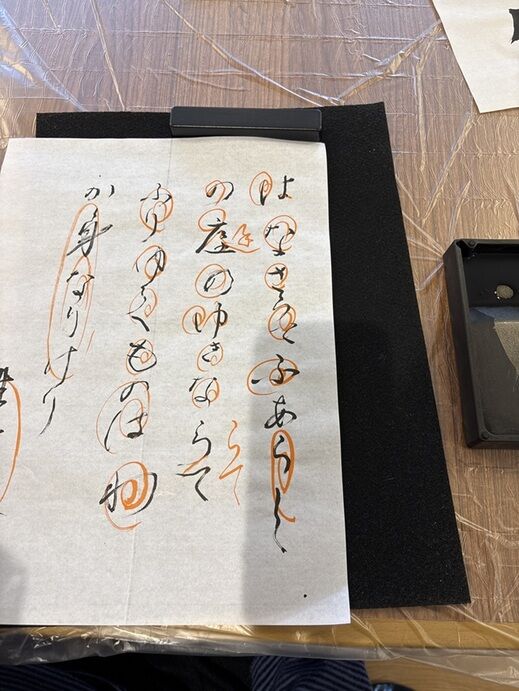 はなさそふあらし
の庭のゆきならて
らて
ふりゆくものはわ
か身なりけり